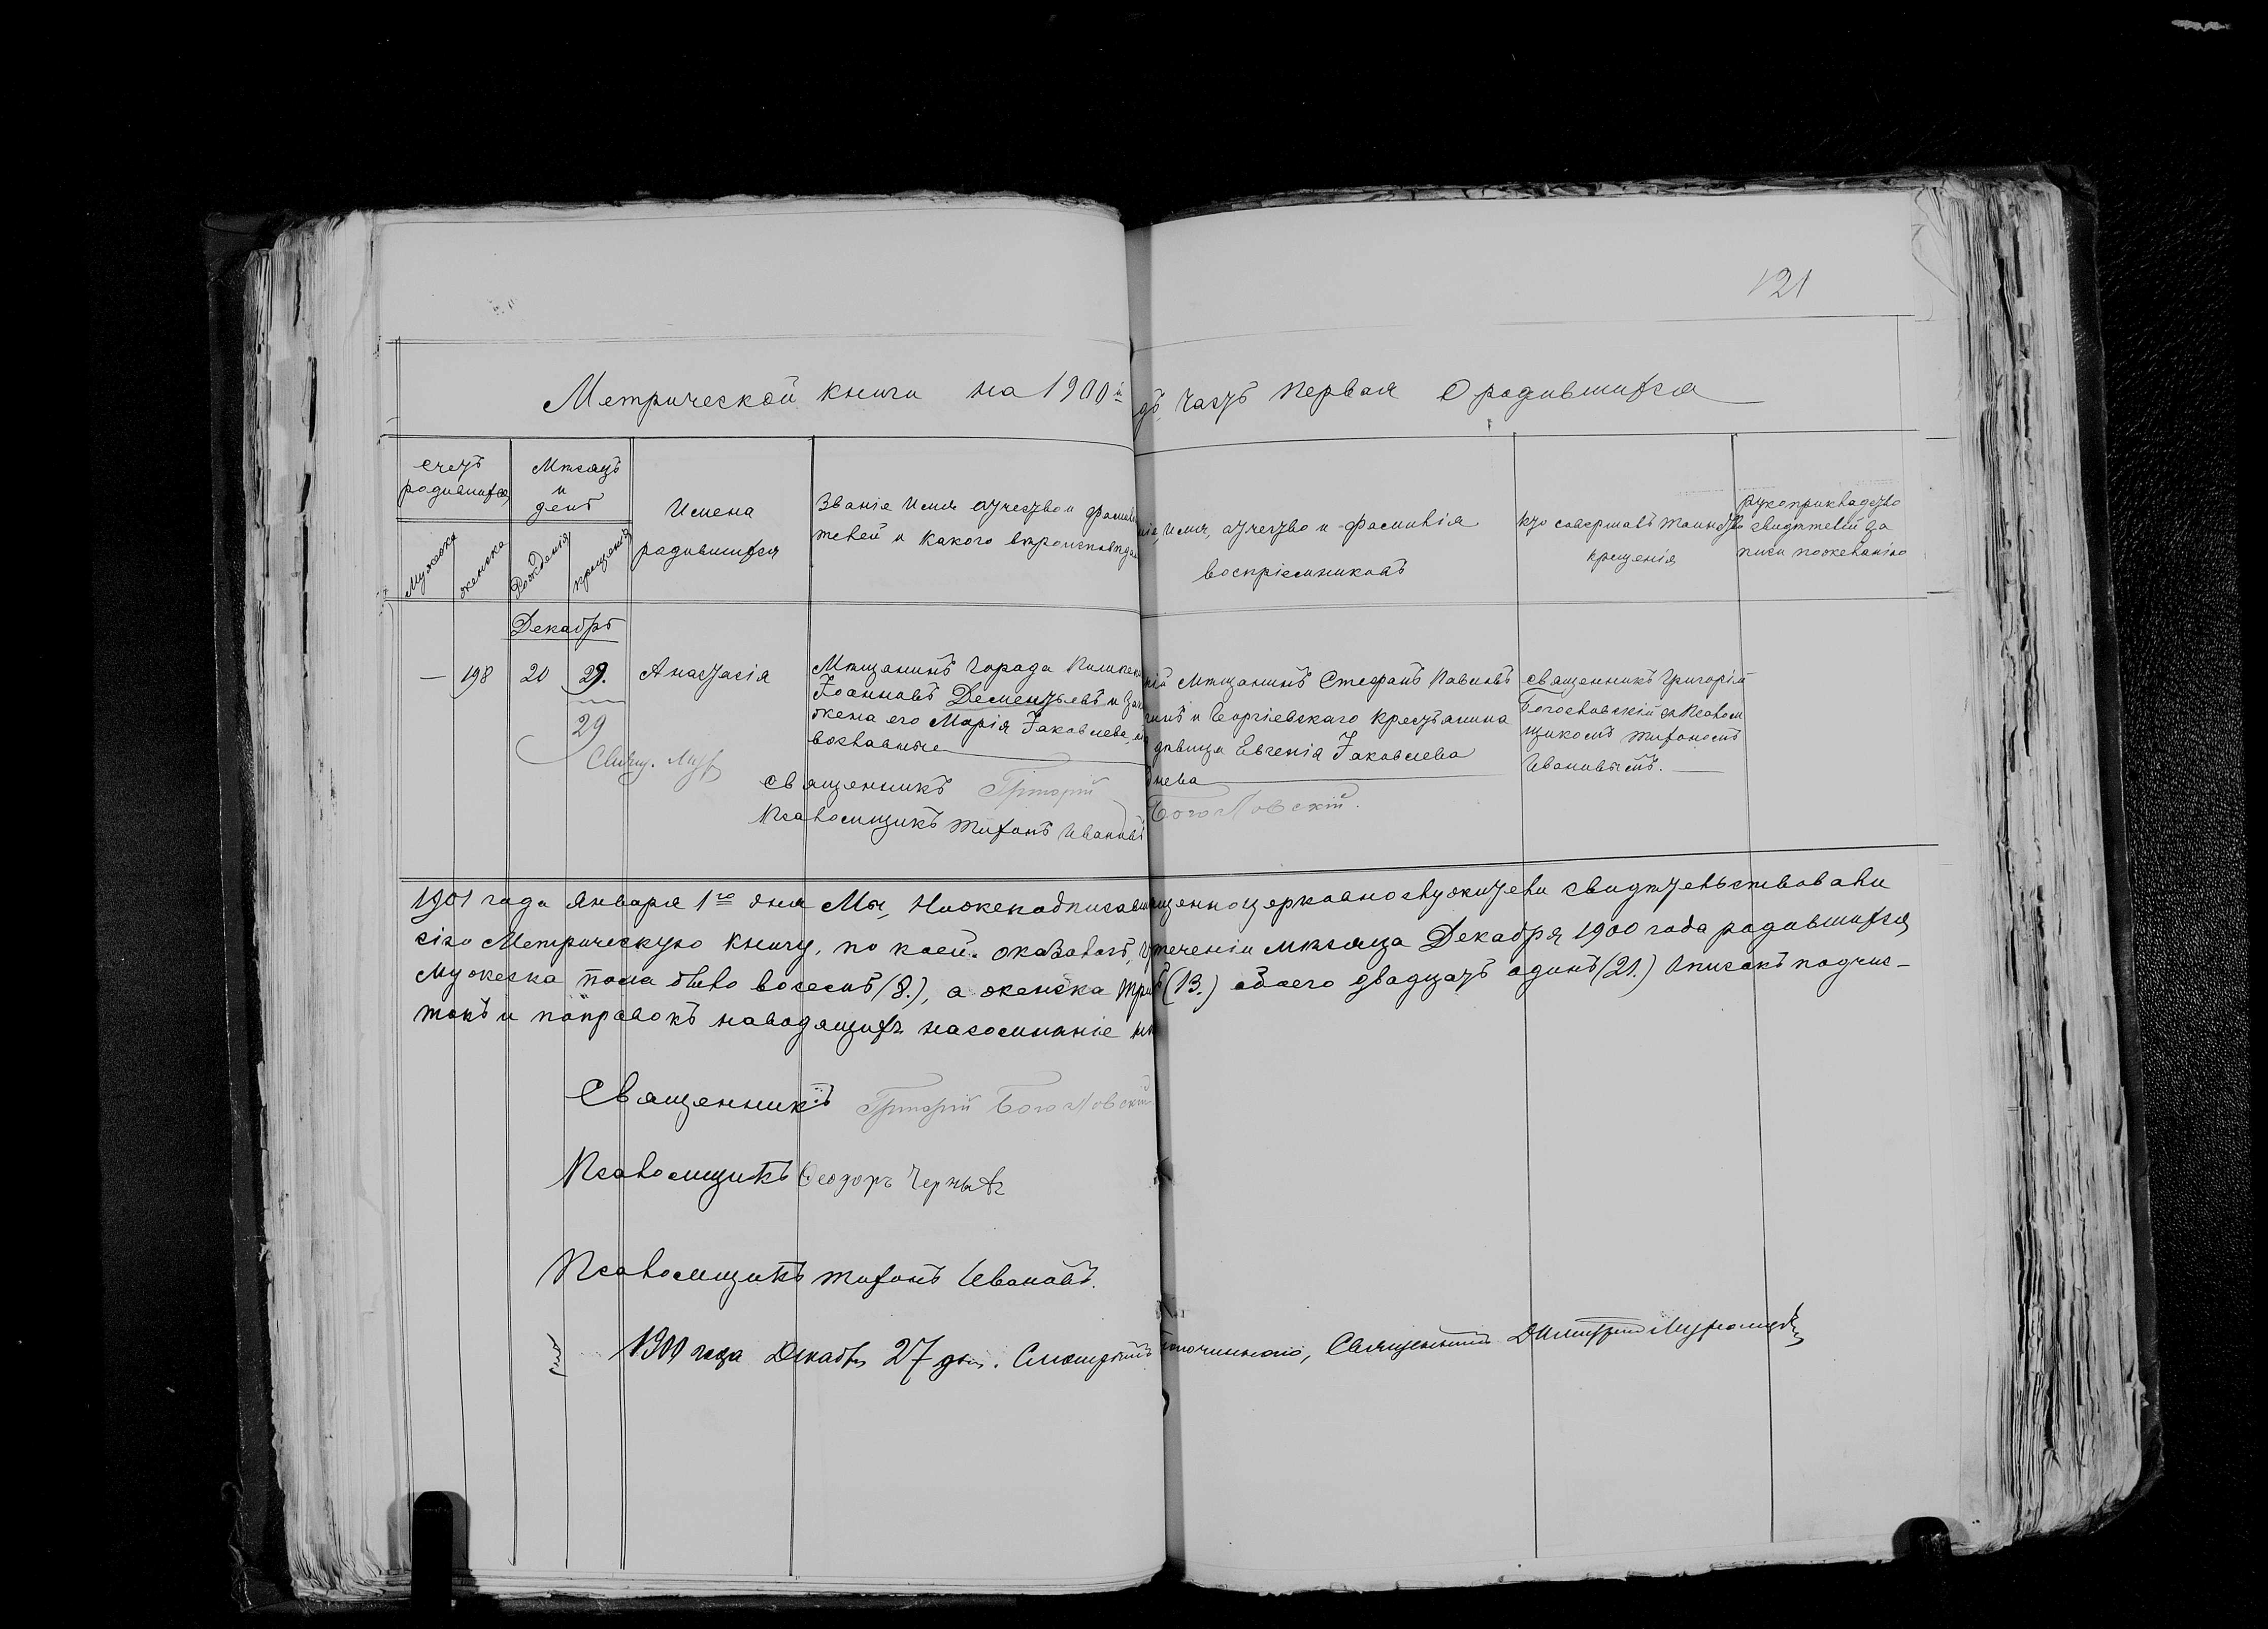 121
Метрической книги на 1900 й
дъ, часть первая О родившихся
Счетъ родившихся
Мѣсяцъ и день
Имена родившихся
Званіе имя отчество и фамилі
телей и какого вѣроисповѣда
ніе, имя, отчество и фамилія
воспріемниковъ
кто совершалъ таинство
крещенія
рукоприкладство
свидѣтелей за
писи по желанію
Мужска
женска
Рожденія
крещенія
Декабрь
— 198 20 29. Анастасія
29
Мѣщанинъ города
Іоанновъ Дементьевъ и зак
жена его Марія Іаковлева,
вославные
кій мѣщанинъ Стефанъ Павловъ
и Георгіевскаго крестьянина
дѣвица Евгенія Іаковлева
нева
Священникъ Григорій
Богословскій и Псалом
щикомъ Тихономъ
Ивановымъ.
Священникъ Григорій Богословскій.
Псаломщикъ Тихонъ Ивановъ
1901 года Января 1го дня Мы, Нижеподписав щенноцерковнослужители свидѣтельствовали
сію Метрическую книгу, по коей оказалось, теченіи мѣсяца Декабря 1900 года родившихся
Мужеска пола было восемь (8.), а женска три (13.) обоего двадцать одинъ (21.) Описокъ подчис-
токъ и поправокъ наводящихъ на сомнѣніе нѣ
Священникъ Григорій Богословскій
Псаломщикъ Ѳеодоръ Черныхъ
Псаломщикъ Тихонъ Ивановъ.
1900 года Декабря 27 дня. Смотрѣлъ благочинного, Священникъ Димитрій